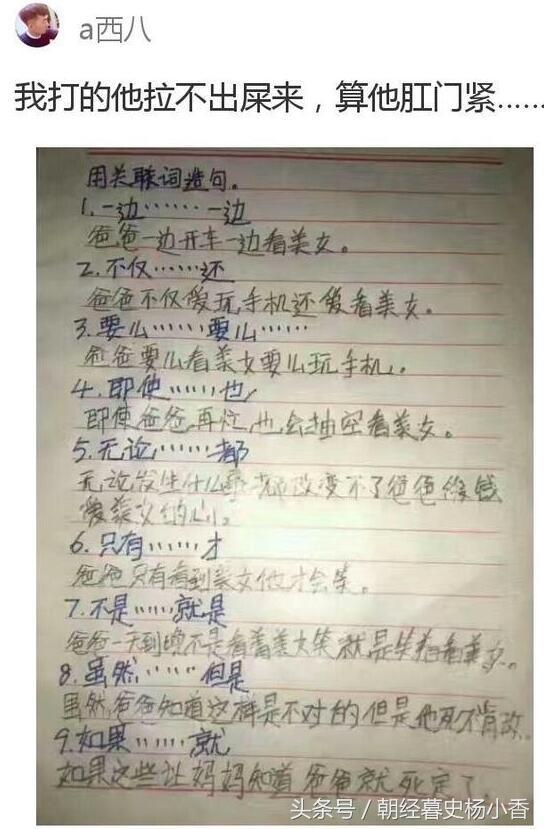 a西八
我打的他拉不出屎来，算他肛门紧……
用关联词造句。
1.一边……一边
爸爸一边开车一边看美女。
2.不仅……还
爸爸不仅爱玩手机还爱看美女。
3.要么……，要么……
爸爸要么看美女要么玩手机。
4.即使……，也
即使爸爸再忙，也会抽空看美女。
5.无论，……都
无论发生什么事都改变不了爸爸爱钱
爱美女的心。
6.只有……才
爸爸只有看到美女他才会笑。
7.不是……就是
爸爸一天到晚不是看着美女笑就是笑着看美女。
8.虽然，……但是
虽然爸爸知道这样是不对的但是他死不肯改。
9.如果……就
如果这些让妈妈知道爸爸就死定了。
头条号 / 朝经暮史杨小香